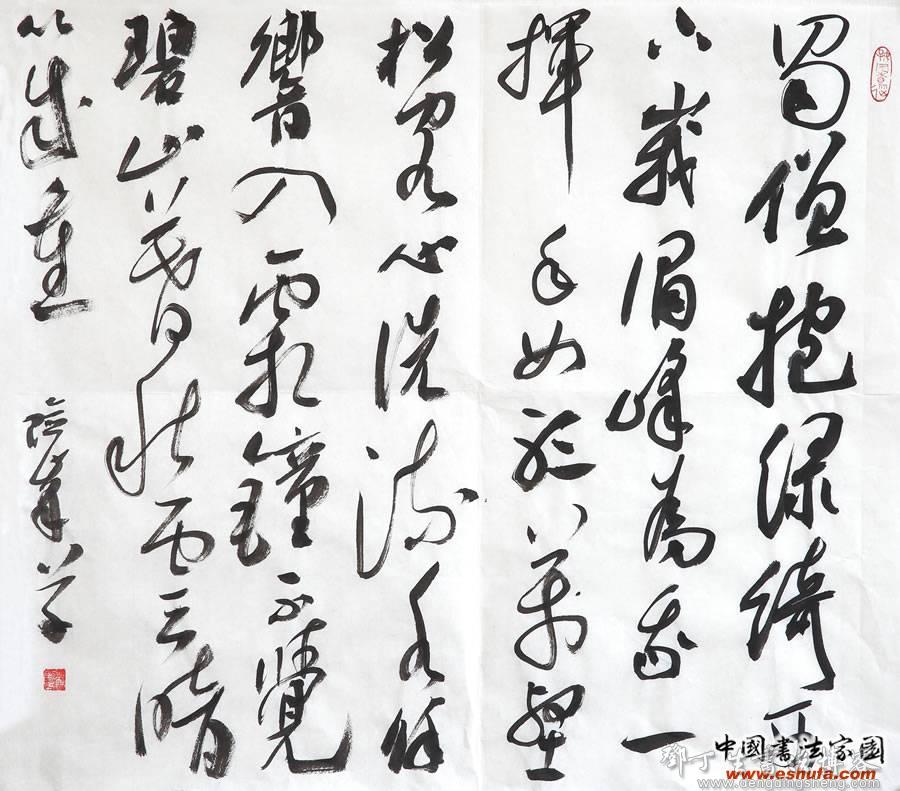 蜀僧抱綠綺西
下峨眉峰為我一
揮手如聽萬壑
松客心洗流水餘
響入霜鐘不覺
碧山暮秋雲暗
幾重
中國書法家園
www.eshufa.com
鄧丁生書法網絡
www.dengdingsheng.com